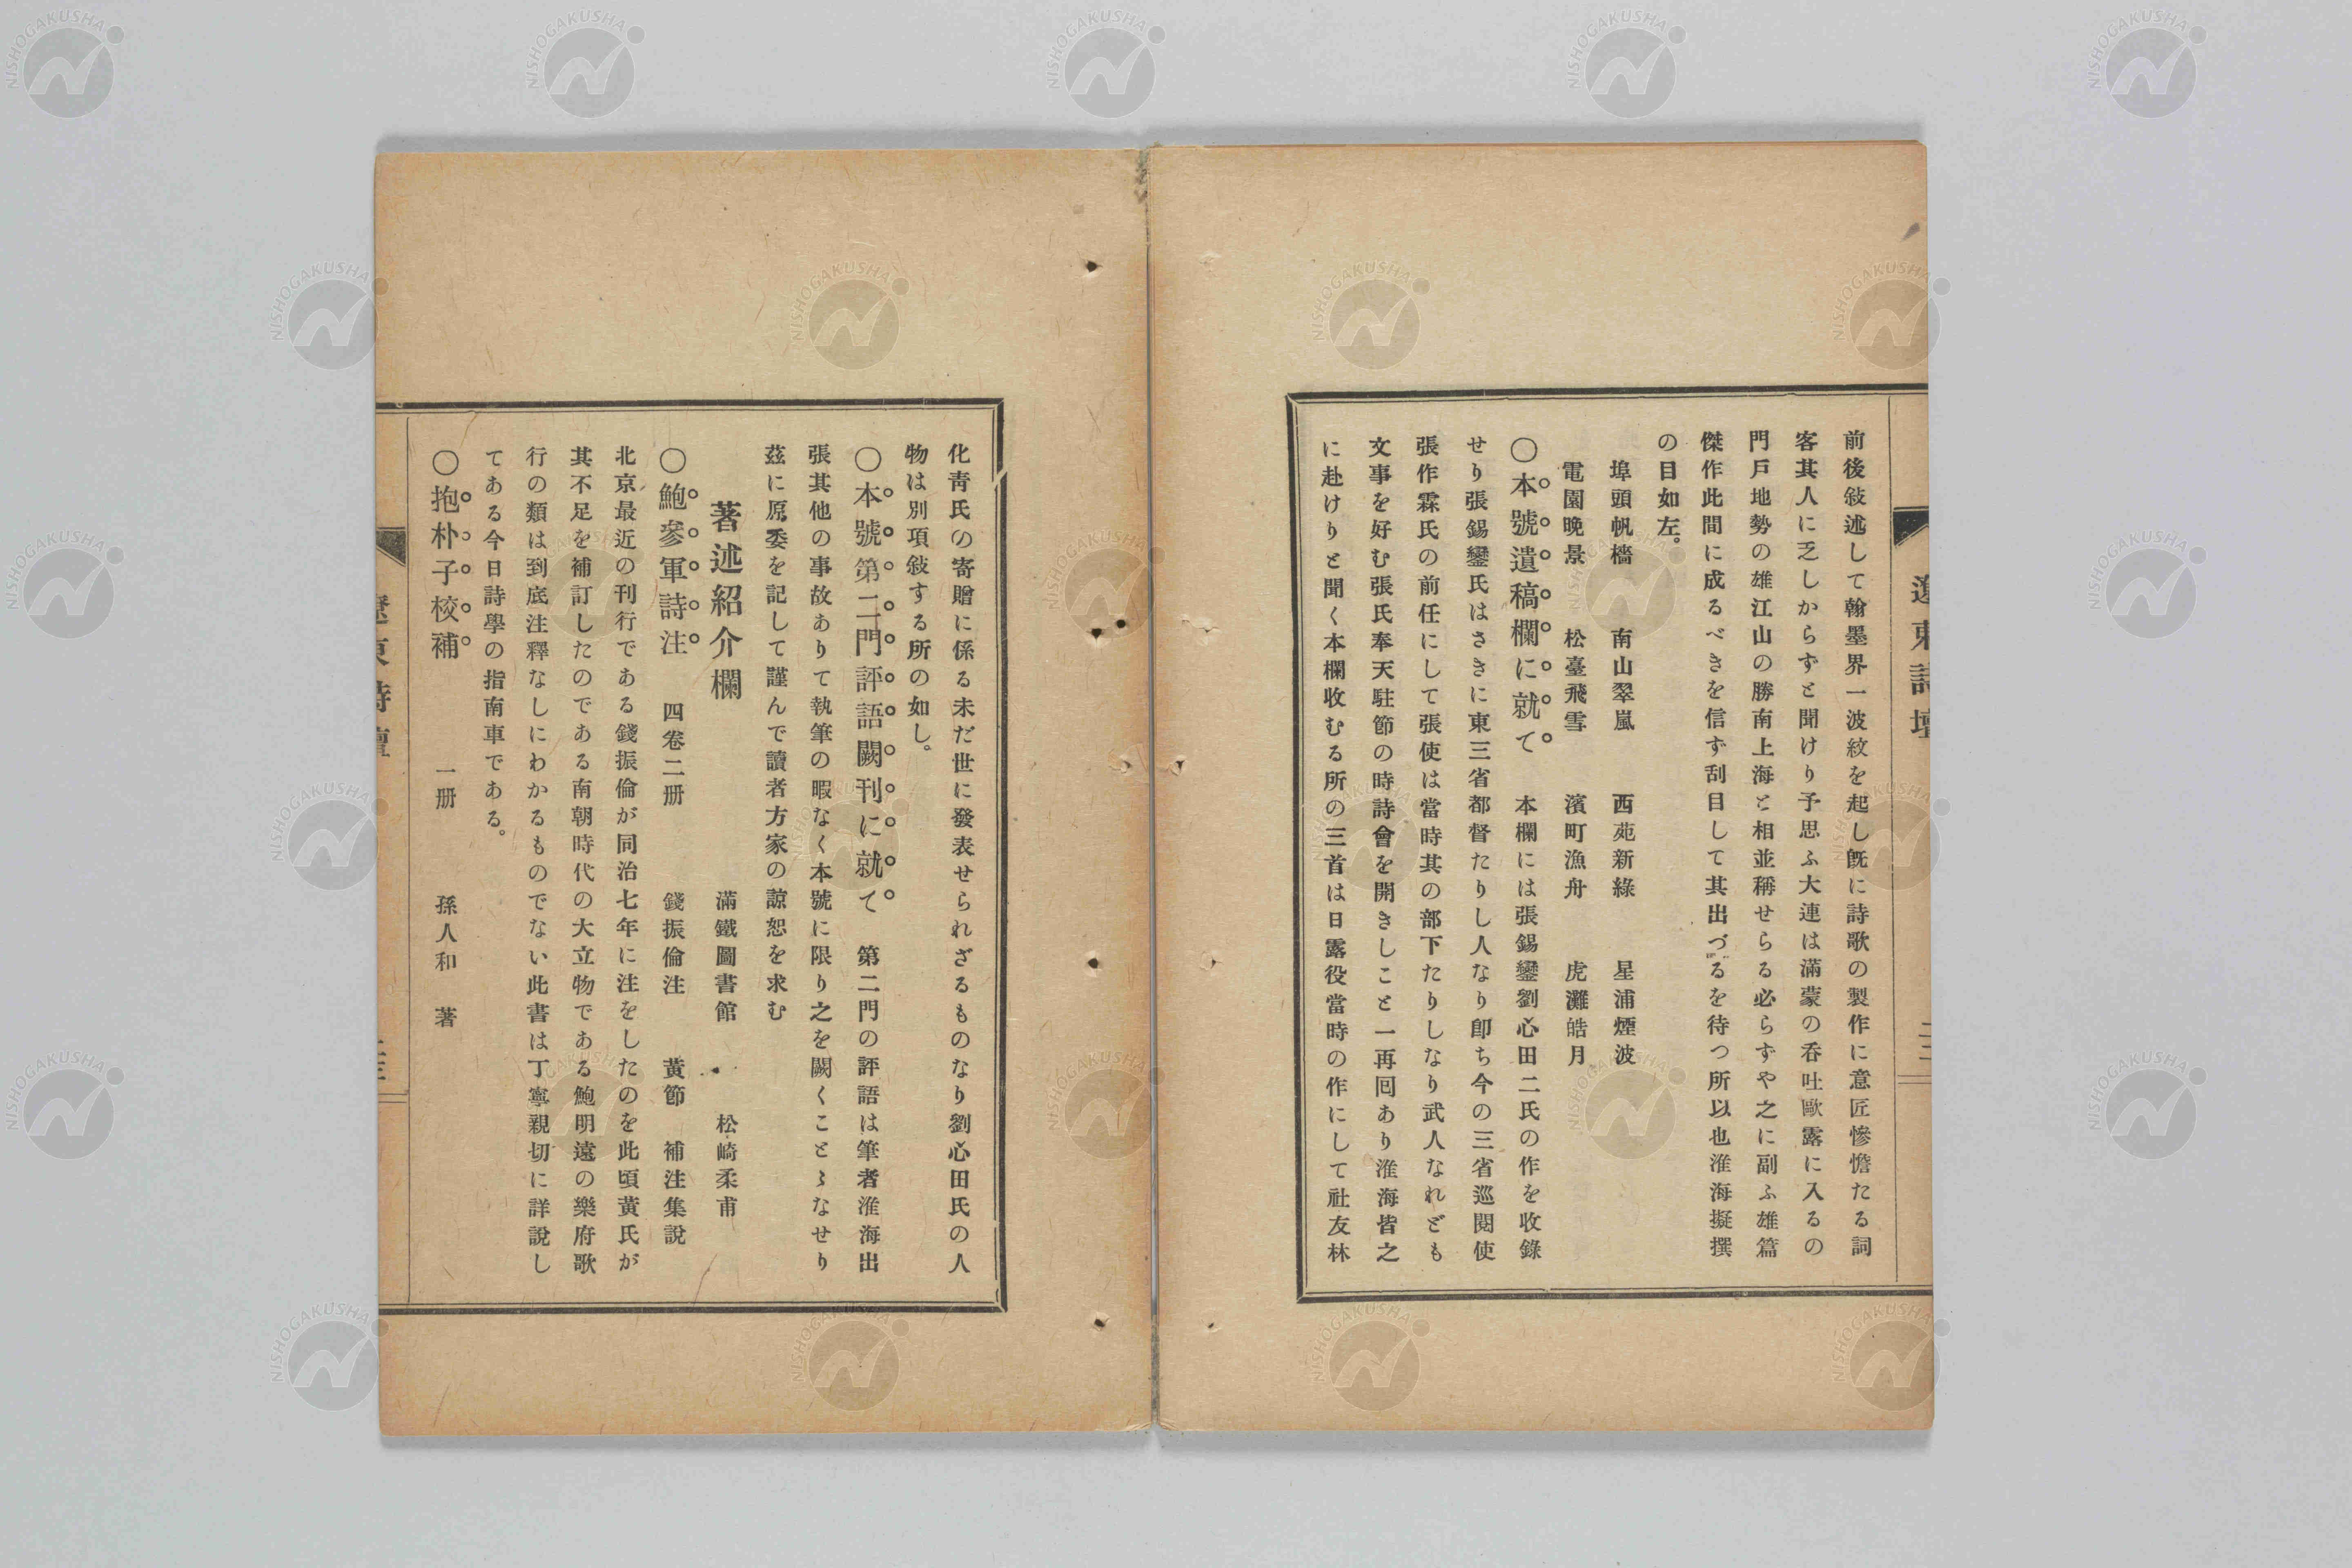 遼東詩壇
前後敍述して翰墨界一波紋を起し旣に詩歌の製作に意匠慘憺たる詞
客其人に乏しからずと聞けり予思ふ大連は滿蒙の呑吐歐露に入るの
門戶地勢の雄江山の勝南上海と相並稱せらる必らずや之に副ふ雄篇
傑作此間に成るべきを信ず刮目して其出づるを待つ所以也淮海擬撰
の目如左。
埠頭帆檣　南山翠嵐　西苑新綠　星浦煙波
電園晚景　松臺飛雪　濱町漁舟　虎灘皓月
〇本號遺稿欄に就て　本欄には張錫鑾劉心田二氏の作を收錄
せり張錫鑾氏はさきに東三省都督たりし人なり卽ち今の三省巡閱使
張作霖氏の前任にして張使は當時其の部下たりしなり武人なれども
文事を好む張氏奉天駐節の時詩會を開きしこと一再囘あり淮海皆之
に赴けりと聞く本欄收むる所の三首は日露役當時の作にして社友林
化靑氏の寄贈に係る未だ世に發表せられざるものなり劉心田氏の人
物は別項敍する所の如し。
〇本號第二門評語闕刊に就て　第二門の評語は筆者淮海出
張其他の事故ありて執筆の暇なく本號に限り之を闕くことゝなせり
玆に原委を記して謹んで讀者方家の諒恕を求む
著述紹介欄　滿鐵圖書館　松崎柔甫
〇鮑參軍詩注　四卷二册　錢振倫注　黃節　補注集說
北京最近の刊行である錢振倫が同治七年に注をしたのを此頃黃氏が
其不足を補訂したのである南朝時代の大立物である鮑明遠の樂府歌
行の類は到底注釋なしにわかるものでない此書は丁寧親切に詳說し
てある今日詩學の指南車である。
〇抱朴子校補　一册　孫人和　著
遼東詩壇
NISHOGAKUSHA